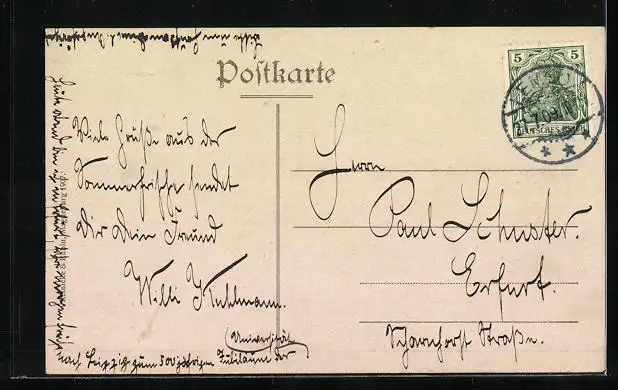 Postkarte
5 5
DEUTSCHES REICH
7.09
Viele Grüße aus der
Sommerfrische sendet
Dir Dein Freund
Willi Kuhlmann.
Herrn
Paul Schuster.
Erfurt.
Scharnhorst Straße.
Heute abend bin ich
nach Leipzig zum 500jährigen Jubiläum der
(Universität